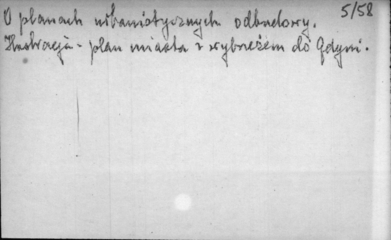 O planach urbanistycznych odbudowy. 5/58
Ilustracja - plan miasta z wybrzeżem do Gdyni.